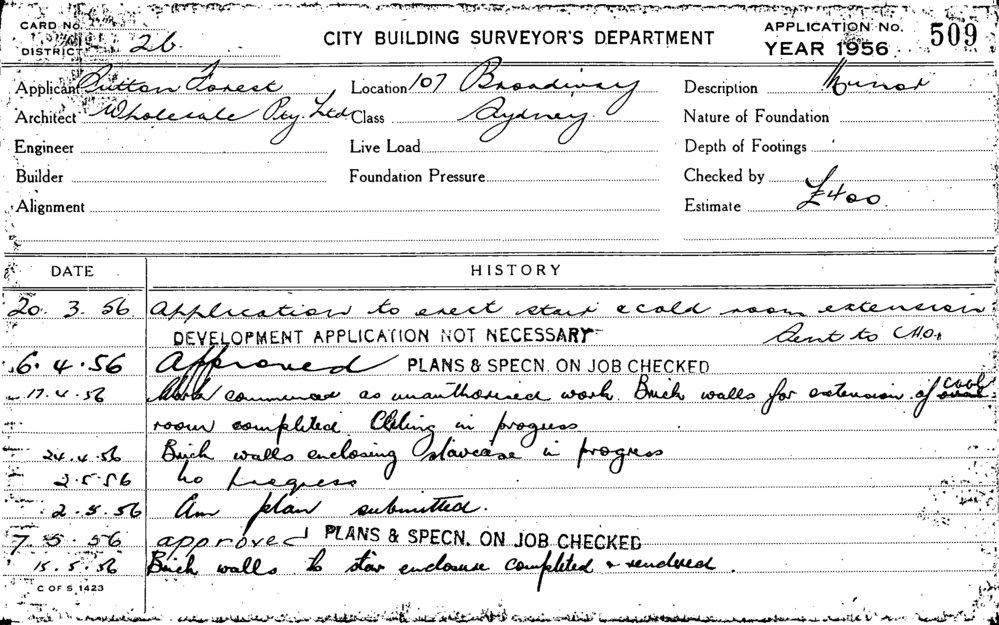 CARD No.
DISTRICT 26
CITY BUILDING SURVEYOR'S DEPARTMENT
APPLICATION No. 509
YEAR 1956
Applicant Sutton Forest Location 107 Broadway Description Minor
Architect Wholesale Pty. Ltd Class Sydney. Nature of Foundation
Engineer Live Load Depth of Footings
Builder Foundation Pressure Checked by
Alignment Estimate £400
DATE HISTORY
20. 3. 56 Application to erect stair & cold room extension
DEVELOPMENT APPLICATION NOT NECESSARY Sent to C.H.O.
6. 4. 56 Approved PLANS & SPECN. ON JOB CHECKED
17. 4. 56 Work commenced as unauthorised work. Brick walls for extension of cool
room completed. Ceiling in progress
24.4.56 Brick walls enclosing staircase in progress
2.5.56 No progress
2.5.56 Am plan submitted.
7. 5. 56 approved PLANS & SPECN. ON JOB CHECKED
15.5.56 Brick walls to stair enclosure completed & rendered.
C OF S 1423